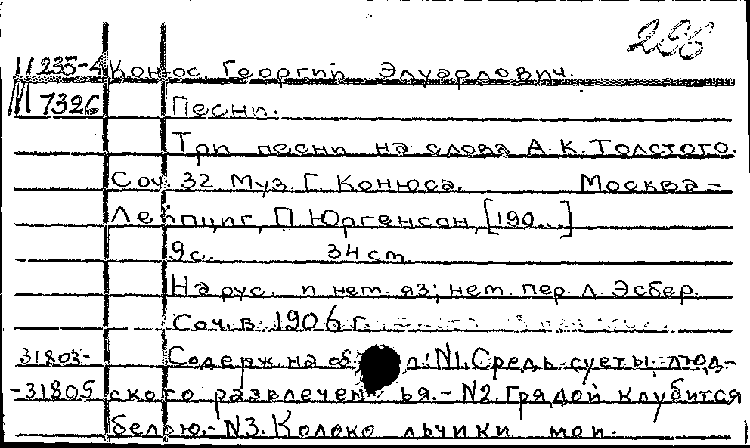 296
М 235-4 Конюс Георгий Эдуардович.
М 7326 Песни.
Три песни на слова А.К. Толстого.
Соч. 32 Муз Г. Конюса. Москва-
Лейпциг, П Юргенсон, [190...]
9 с. 34 cm.
На рус. и нем. яз; нем. пер Л. Эсбер.
Соч. в 1906 г.
31803- Содерж на об л: N1. Средь суеты люд-
-31805 ского развлеченья.- N2. Грядой клубится
белою.- N3. Колокольчики мои.